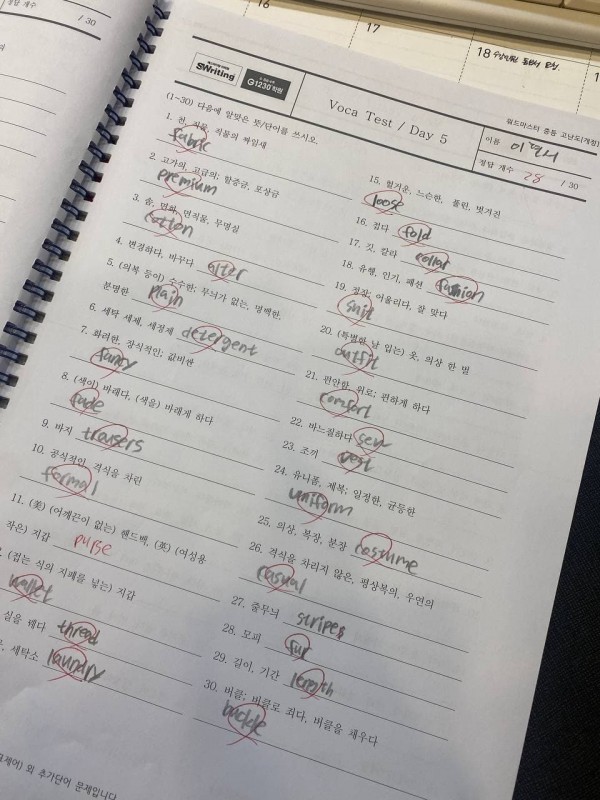 / 30
16
17
18
SWriting
G1230학원
Voca Test / Day 5
워드마스터 중등 고난도(개정)
이름
정답 개수 28 / 30
(1~30) 다음에 알맞은 뜻/단어를 쓰시오.
1. 천, 직물, 직물의 짜임새
fabric
2. 고가의, 고급의; 할증금, 포상금
premium
3. 솜, 면화, 면직물, 무명실
cotton
4. 변경하다, 바꾸다 alter
5. (의복 등이) 수수한; 무늬가 없는, 명백한,
분명한 plain
6. 세탁 세제, 세정제 detergent
7. 화려한, 장식적인; 값비싼
fancy
8. (색이) 바래다, (색을) 바래게 하다
fade
9. 바지 trousers
10. 공식적인, 격식을 차린
formal
11. (美) (어깨끈이 없는) 핸드백, (英) (여성용
작은) 지갑 purse
(접는 식의 지폐를 넣는) 지갑
wallet
실을 꿰다 thread
세탁소 laundry
15. 헐거운, 느슨한, 풀린, 벗겨진
loose
16. 접다 fold
17. 깃, 칼라 collar
18. 유행, 인기, 패션 fashion
19. 정장; 어울리다, 잘 맞다
suit
20. (특별한 날 입는) 옷, 의상 한 벌
outfit
21. 편안함, 위로; 편하게 하다
comfort
22. 바느질하다 sew
23. 조끼 vest
24. 유니폼, 제복; 일정한, 균등한
uniform
25. 의상, 복장, 분장 costume
26. 격식을 차리지 않은, 평상복의, 우연의
casual
27. 줄무늬 stripes
28. 모피 fur
29. 길이, 기간 length
30. 버클; 버클로 죄다, 버클을 채우다
buckle
외 추가단어 문제입니다